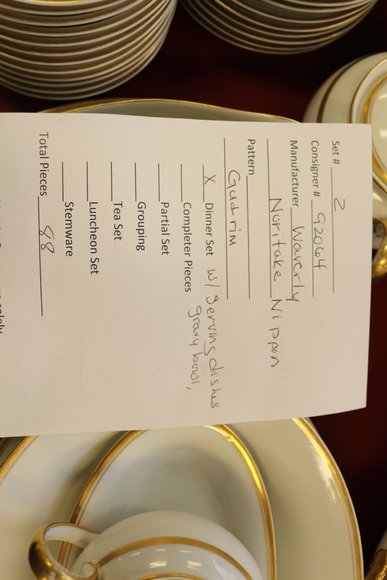 Set # 2
Consigner # 92064
Manufacturer Waverly
Noritake Nippon
Pattern
Gudrim
X Dinner Set w/ serving dishes
Completer Pieces gravy bowl,
Partial Set
Grouping
Tea Set
Luncheon Set
Stemware
Total Pieces 88